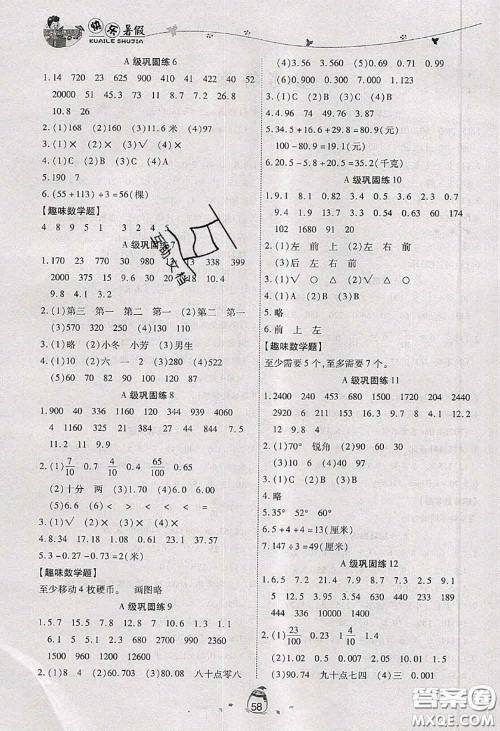 快乐暑假
KUAILE SHUJIA
A 级巩固练 6
1.14 720 23 625 900 510 52 168
20000 51 45.3 4.21 115 18.26
10.8 26
2.(1)162 (2)160 (3)11.6 米 (4)97
3.(1)× (2)× (3)× (4)×
4.(1)C (2)B (3)C (4)A
5.190 7
6.(55+113)÷3=56(棵)
【趣味数学题】
4 8 9 5 1 3 2 4 1
A 级巩固练 7
1.170 23 770 30 990 13 338 399
2000 375 15 9.6 12.3 20 18 30
9.8 4.1 3.2
2.(1)第三 第一 第二 第一 (2)第一 第二
(3)570 (4)8
3.(1)略 (2)小冬 小芳 (3)男生
4.(1)10 (2)六 一 2 (3)380 (4)52
(5)60 (6)27 87 70
A 级巩固练 8
1.900 40 336 1160 120 3 450 20
4 1160 325 21 384 277 44 9.4
22 8 7.7
2.(1)7/10 0.7 4/10 0.4 65/100 0.65
(2)十分 两 (3)1.05 (4)1.2
3.(1)√ (2)× (3)× (4)×
4.(1)> (2)< (3)< (4)< (5)= (6)<
5.3-0.27-0.73=2(米)
【趣味数学题】
至少移动 4 枚硬币。 画图略
A 级巩固练 9
1.5.7 7.9 15.7 12.8 7.09 11.1 1.6
9.4 4.35 9.45 10.36 6.1 0.69
2.(1)8 4 (2)60.703 八十点零八
(3)3.56 0.356 (4)0.73 0.69 0.6
0.06
3.(1)C (2)B (3)B (4)B
4.9.94 16.74 1.8 108
5.34.5+16.6+29.8=80.9(元)
100-80.9=19.1(元)
6.20.5-5.4+5.4=20.5(千克)
A 级巩固练 10
1.9.1 8.1 0.82 3.25 0.13 0.65
3.7 1.4 0.75 9.4 3.9 4.7 6.93
102 1680 91 0.7
2.(1)左 前 上 (2)左 右 前
(3)后 左 右 前
3.(1)√ ○ △ (2)√ △ ○
4.(1)A (2)B (3)B
5.略
6.前 上 左
【趣味数学题】
至少需要 5 个,至多需要 7 个。
A 级巩固练 11
1.2400 240 453 680 1500 1554
2920 6 111 207 13.4 9.36 4.63
12 9.8 4.4
2.(1)70° 锐角 (2)90 60 30
(3)100 80 (4)120 30 (5)80
3.(1)B (2)A (3)A (4)B
4.略
5.35° 52° 60°
6.5+4+4=13(厘米)
7.147÷3=49(厘米)
A 级巩固练 12
1.5.5 3.81 5.2 1.8 8.7 16 9.22
289 3300 13.7 2.85 4.54 500
14000
2.(1)23/100 0.23 (2)1 1/4 0.25
(2)1.05 0.5 (3)0.01 45
(3)90.74 九十点七四 (4)三 0.001
58